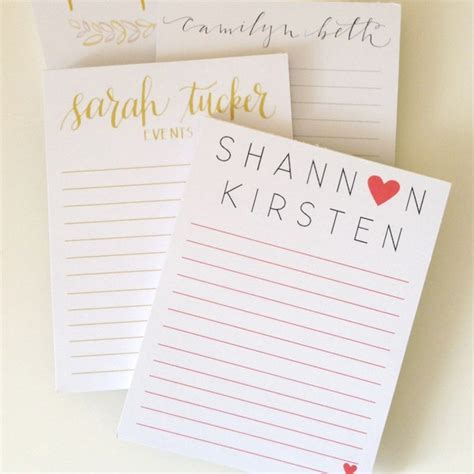 camilyn beth
sarah tucker
EVENTS
SHANN♥N
KIRSTEN